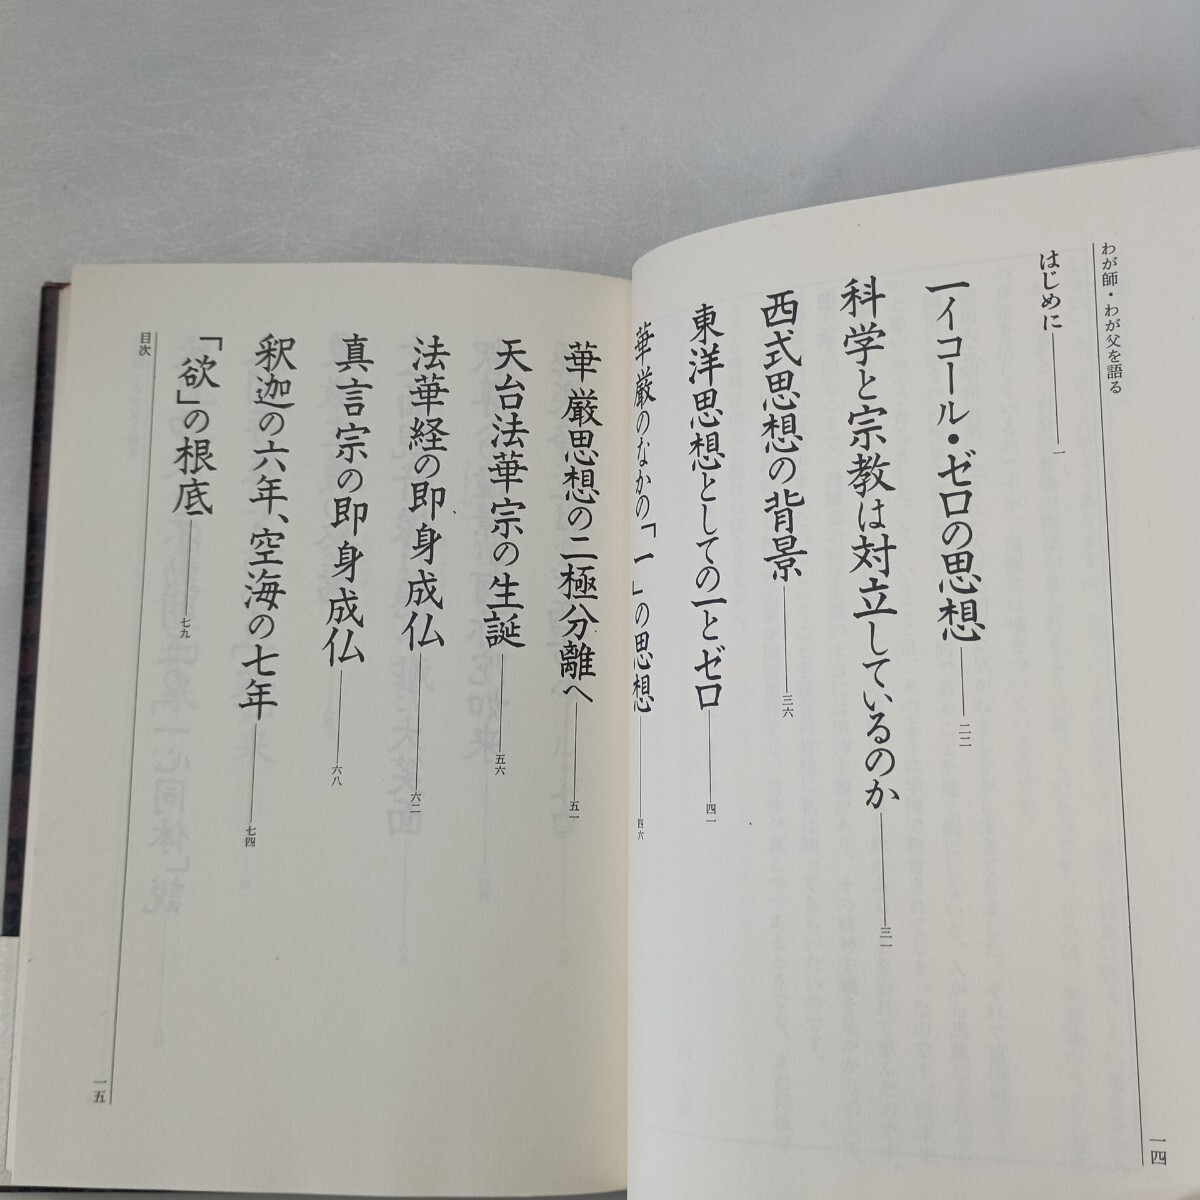 わが師・わが父を語る
はじめに 一
一イコール・ゼロの思想 二二
科学と宗教は対立しているのか 三一
西式思想の背景 三六
東洋思想としての一とゼロ 四一
華厳のなかの「一」の思想 四六
一四
華厳思想の二極分離へ 五一
天台法華宗の生誕 五六
法華経の即身成仏 六二
真言宗の即身成仏 六八
釈迦の六年、空海の七年 七四
「欲」の根底 七九
目次
一五